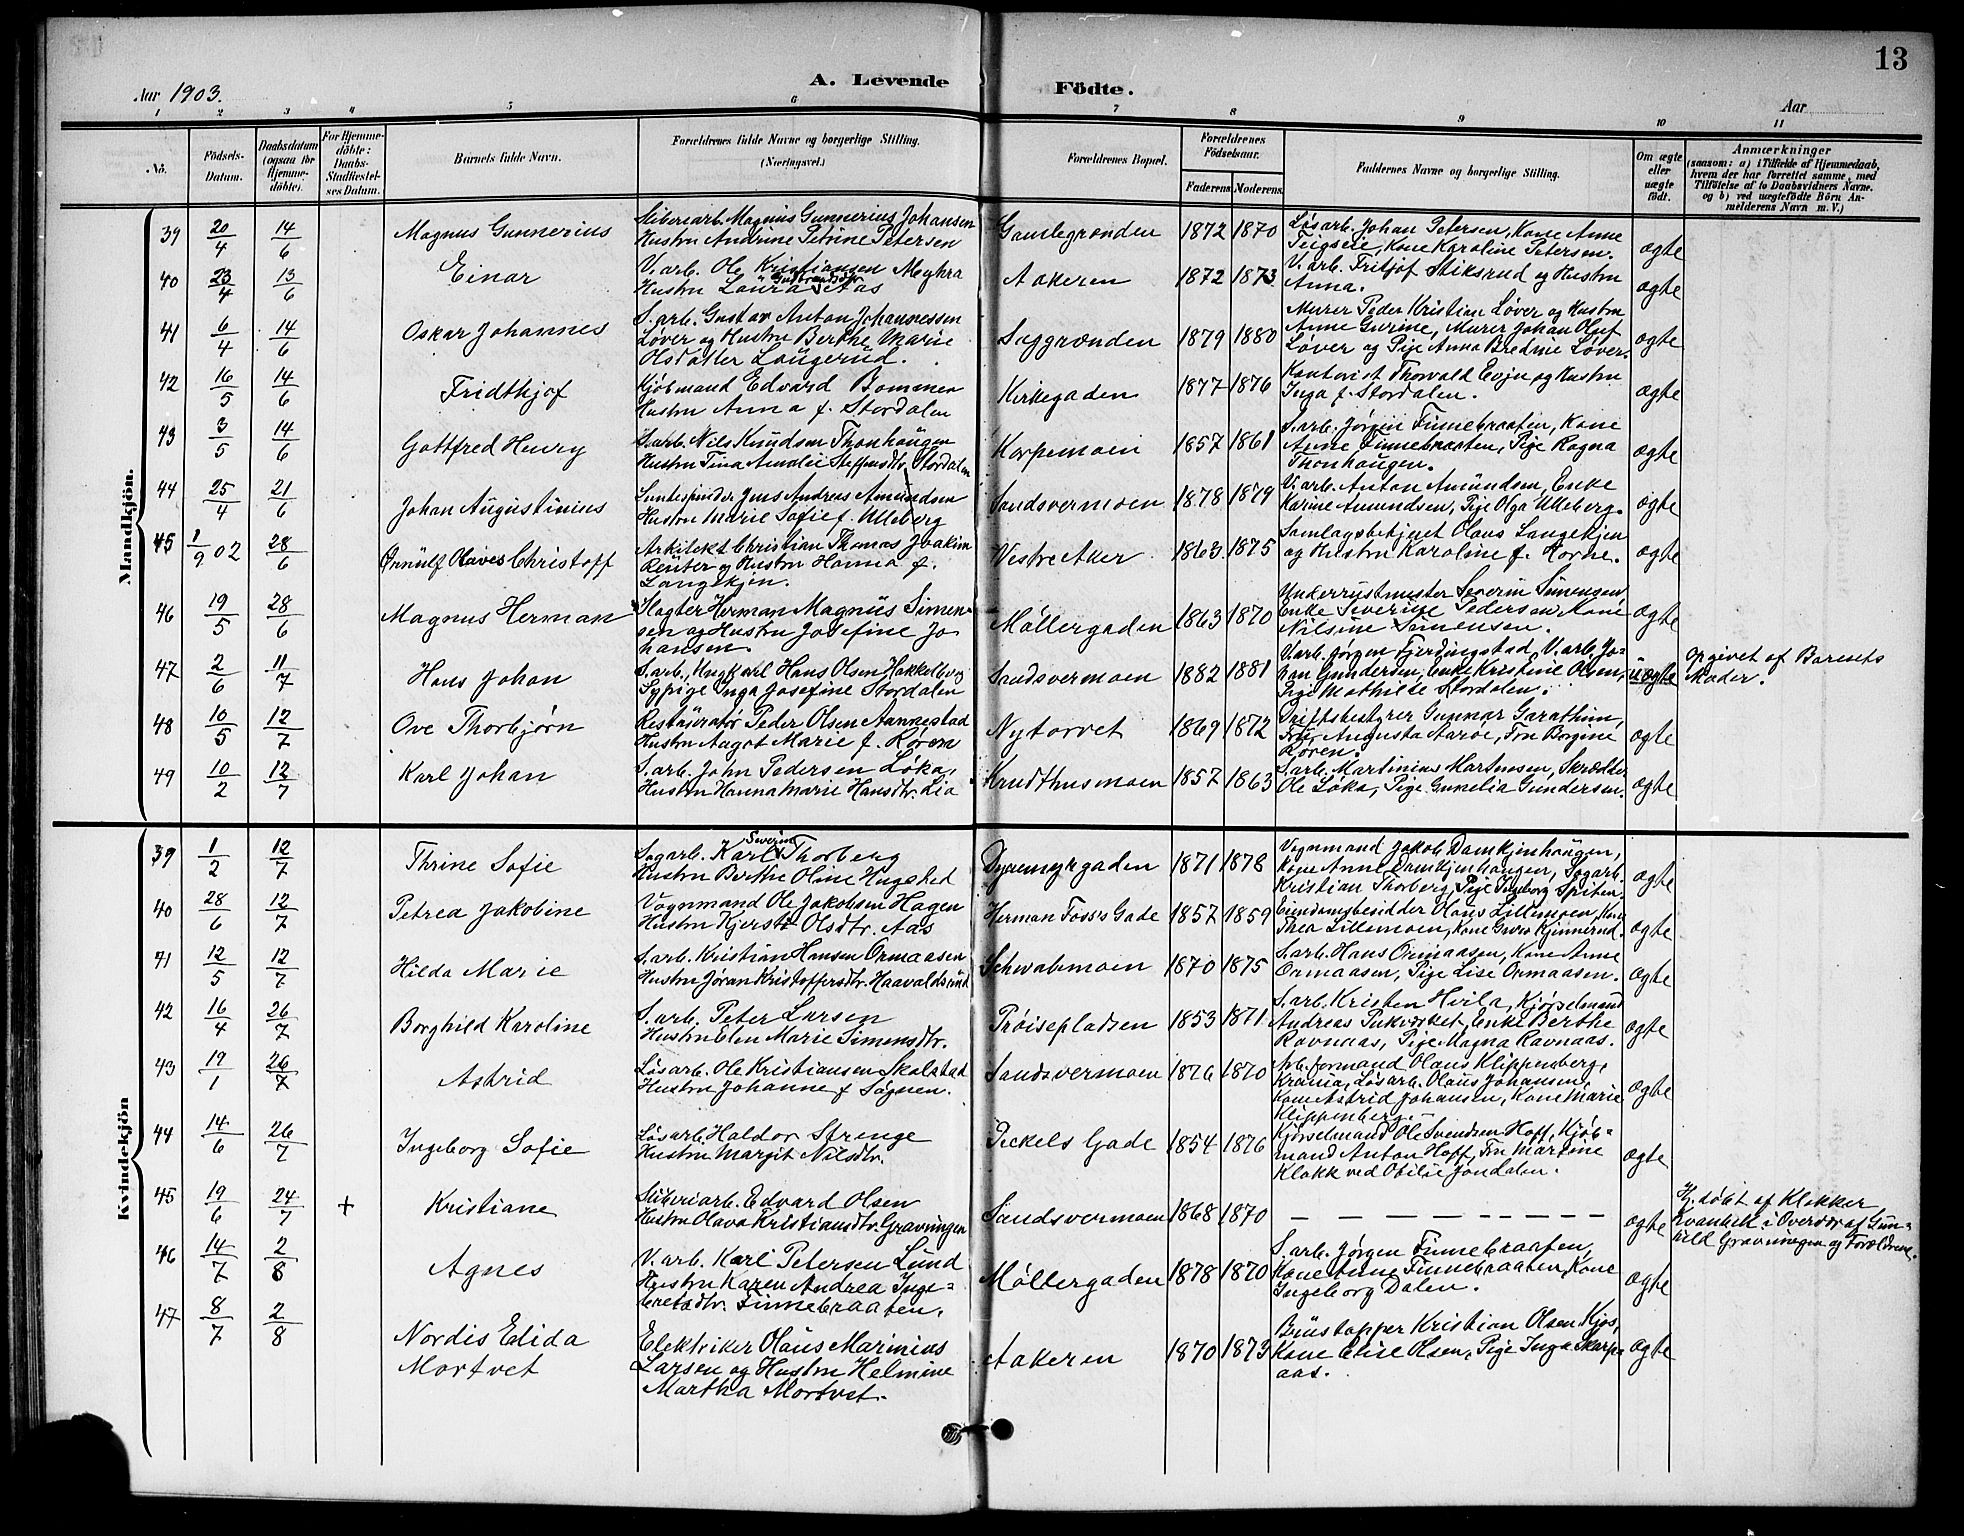 13
A. Levende Födte.
Aar 1903.
Aar
1 2 3 4 5 6 7 8 9 10 11
No.
Födsels-Datum.
Daabsdatum (ogsaa for Hjemme-döbte).
For Hjemme-döbte: Daabs-Stadfæstel-ses Datum.
Barnets fulde Navn.
Forældrenes fulde Navne og borgerlige Stilling. (Næringsvei.)
Forældrenes Bopæl.
Forældrenes Födselsaar.
Faderens Moderens
Faddernes Navne og borgerlige Stilling.
Om ægte eller uægte født.
Anmærkninger
(saasom: a) i Tilfælde af Hjemmedaab, hvem der har forrettet samme, med Tilföielse af to Daabsvidners Navne, og b) ved uægtefödte Börn An-melderens Navn m. V.)
Mandkjön.
39 20/4 14/6 Magnus Gunnerius
Sliberiarb. Magnus Gunnerius Johansen
Hustru Andrine Petrine Petersen
Gamlegrænden 1872 1870
Løsarb. Johan Petersen, Kone Anne
Teigseie, Kone Karoline Petersen.
ægte
40 23/4 13/6 Einar
V. arb. Ole Kristiansen Meghra
Hustru Laura Gudbrandsdtr. Aas
Aakeren 1872 1873
V. arb. Fritjof Stiksrud og Hustru
Anna.
ægte
41 6/4 14/6 Oskar Johannes
S. arb. Gustav Anton Johannessen
Løver og Hustru Berthe Marie
Olsdatter Laugerud.
Saggrænden 1879 1880
Murer Peder Kristian Løver og Hustru
Anne Gurine, Murer Johan Oluf
Løver og Pige Anna Bredine Løver.
ægte
42 16/5 14/6 Fridthjof
Kjöbmand Edvard Bommen
Hustru Anna f. Stordalen
Kirkegaden 1877 1876
Kontorist Thorvald Evju og Hustru
Inga f. Stordalen.
ægte
43 3/5 14/6 Gottfred Henry
S. arb. Nils Knudsen Thonhaugen
Hustru Tina Amalie Steffensdtr. Stordalen
Korpemoen 1857 1861
S. arb. Jørgen Finnebraaten, Kone
Anne Finnebraaten, Pige Ragna
Thonhaugen.
ægte
44 25/4 21/6 Johan Augustinius
Luntespinder Jens Andreas Amundsen
Hustru Marie Sofie f. Ulleberg
Sandsvermoen 1878 1879
V. arb. Anton Amundsen, Enke
Karine Amundsen, Pige Olga Ulleberg.
ægte
45 1/9 02 28/6 Ørnulf Olaves Christoff
Arkitekt Christian Thomas Joakim
Reuter og Hustru Hanna f.
Langekjen.
Vestre Aker 1863 1875
Samlagsbestyrer Olaus Langekjen
og Hustru Karoline f. Horne.
ægte
46 19/5 28/6 Magnus Herman
Slagter Herman Magnus Simen-
sen og Hustru Josefine Jo
hansen.
Møllergaden 1863 1870
Underrustmester Severin Simensen
Enke Severine Pedersen, Kone
Nilsine Simensen.
ægte
47 2/6 11/7 Hans Johan
S. arb., Ungkarl Hans Olsen Hakkelberg
Sypige Inga Josefine Stordalen
Sandsvermoen 1882 1881
V. arb. Jørgen Fjerdingstad, V. arb. Jo=
han Gundersen, Enke Kristine Olsen,
Pige Mathilde Stordalen.
uægte
Opgivet af Barnets
Moder.
48 10/5 12/7 Ove Thorbjørn
Restauratør Peder Olsen Aannestad
Hustru Aagot Marie f. Røren
Nytorvet 1869 1872
Driftsbestyrer Gunnar Garathun,
Fru Augusta Aarøe, Fru Borgine
Røren.
ægte
49 10/2 12/7 Karl Johan
S. arb. John Pedersen Løka,
Hustru Hanna Marie Hansdtr. Lia
Krudthusmoen 1857 1863
S. arb. Martinius Martinsen, Skrædder
Ole Løka, Pige Gunelia Gundersen.
ægte
Kvindekjön
39 1/2 12/7 Thrine Sofie
Sagarb. Karl Severin Thorberg
Hustru Berthe Oline Hugsted
Dyremyrgaden 1871 1878
Vognmand Jakob Damkjenhaugen,
Kone Anne Damkjenhaugen, Sagarb.
Kristian Thorberg, Pige Ingeborg Spiten.
ægte
40 28/6 12/7 Petrea Jakobine
Vognmand Ole Jakobsen Hagen
Hustru Kjersti Olsdtr. Aas
Herman Foss's Gade 1857 1859
Eiendomsbesidder Olaus Lillemoen, Kone
Thea Lillemoen, Kone Kjinnerud.
ægte
41 12/5 12/7 Hilda Marie
S. arb. Kristian Hansen Ormaasen
Hustru Jøran Kristoffersdtr. Haavaldsrud
Schwabsmoen 1870 1875
S. arb. Hans Ormaasen, Kone Anne
Ormaasen, Pige Lise Ormaasen.
ægte
42 16/4 26/7 Borghild Karoline
S. arb. Peter Larsen
Hustru Elen Marie Simensdtr.
Prøisepladsen 1853 1871
S. arb. Kristen Hvila, Kjørselmand
Andreas Pukværket, Enke Berthe
Ravnaas, Pige Magna Ravnaas.
ægte
43 19/1 26/7 Astrid
Løsarb. Ole Kristiansen Skolstad
Hustru Johanne f Søgnen.
Sandsvermoen 1876 1870
Arb. formand Olaus Klippenberg,
Krania, Løsarb. Olaus Johansen,
Kone Astrid Johansen, Kone Marie
Klippenberg.
ægte
44 14/6 26/7 Ingeborg Sofie
Løsarb. Haldor Strenge
Hustru Margit Nilsdtr.
Peckels Gade 1854 1876
Kjørselmand Ole Svendsen Hoff, Kjøb=
mand Anton Hoff, Fru Martine
Klokk ved Otilie Jondalen.
ægte
45 19/6 24/7 + Kristiane
Sliberiarb. Edvard Olsen
Hustru Olava Kristiansdtr. Gravningen
Sandsvermoen 1868 1870
— — — — — — — —
ægte
Hj. døbt af Klokker
i Overvær af Gun=
hild Gravningen og Forældrene.
46 14/7 2/8 Agnes
V. arb. Karl Petersen Lund
Hustru Karen Andrea Inge=
bretsdtr. Finnebraaten.
Møllergaden 1878 1870
S. arb. Jørgen Finnebraaten,
Kone Anne Finnebraaten, Kone
Ingeborg Dalen.
ægte
47 8/7 2/8 Nordis Elida
Mortvet
Elektriker Olaus Marinius
Larsen og Hustru Helmine
Martha Mortvet.
Aakeren 1870 1873
Brustapper Kristian Olsen Kjos,
Kone Elise Olsen, Pige Inga Skarpe
aas.
ægte